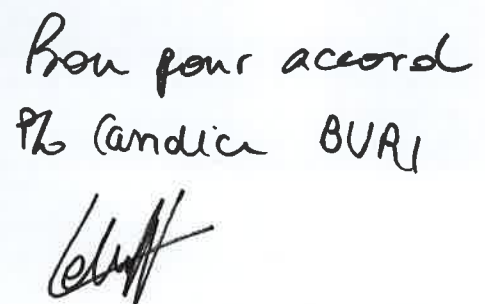 Bon pour accord
P/o Candice BURI